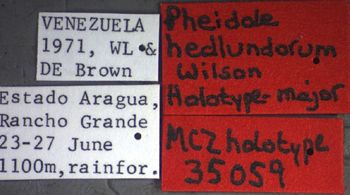 VENEZUELA
1971, WL &
DE Brown
Estado Aragua,
Rancho Grande
23-27 June
1100m, rainfor.
Pheidole
hedlundorum
Wilson
Holotype-major
MCZ holotype
35059